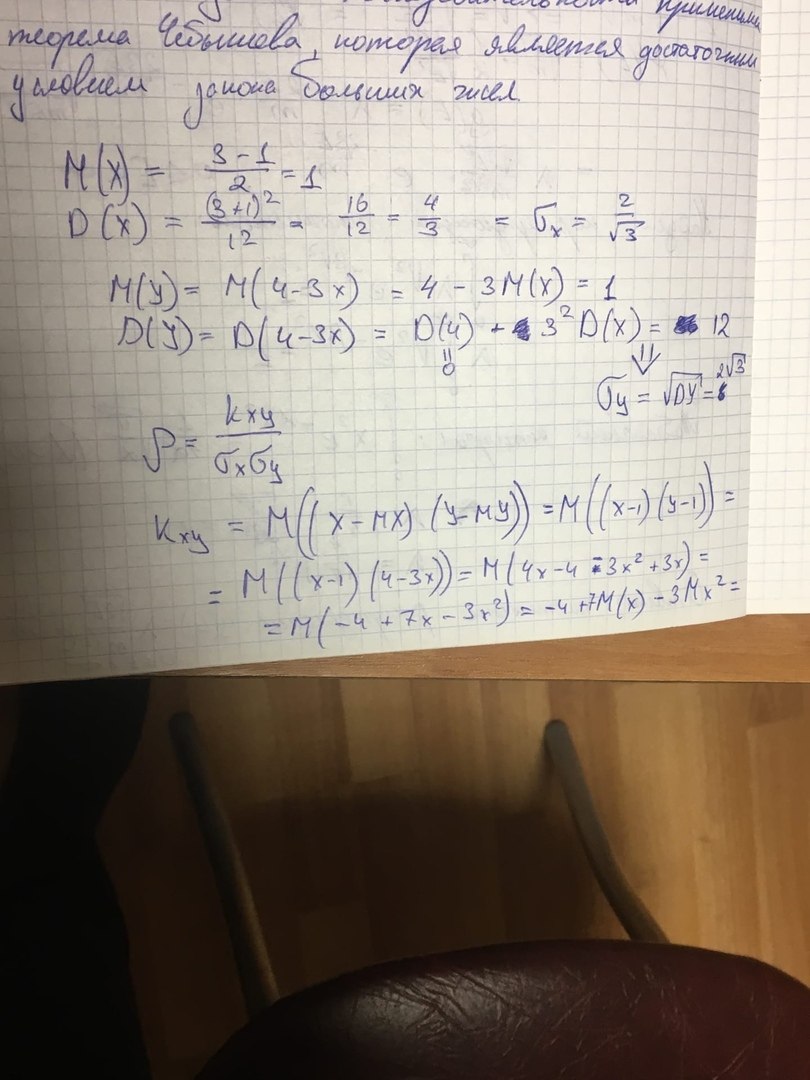 применима
теорема Чебышова, которая является достаточным
условием закона больших чисел.
M(X) = \frac{3-1}{2} = 1
D(X) = \frac{(3+1)^2}{12} = \frac{16}{12} = \frac{4}{3} = σ_x = \frac{2}{\sqrt{3}}
M(y) = M(4-3x) = 4 - 3M(x) = 1
D(y) = D(4-3x) = D(4) + 3^2 D(x) = 12
|| 0 ⇓
σ_y = \sqrt{DY} = 2\sqrt{3}
ρ = \frac{k_{xy}}{σ_x σ_y}
K_{xy} = M((x-MX)(y-MY)) = M((x-1)(y-1)) =
= M((x-1)(4-3x)) = M(4x-4-3x^2+3x) =
= M(-4+7x-3x^2) = -4+7M(x)-3Mx^2 =